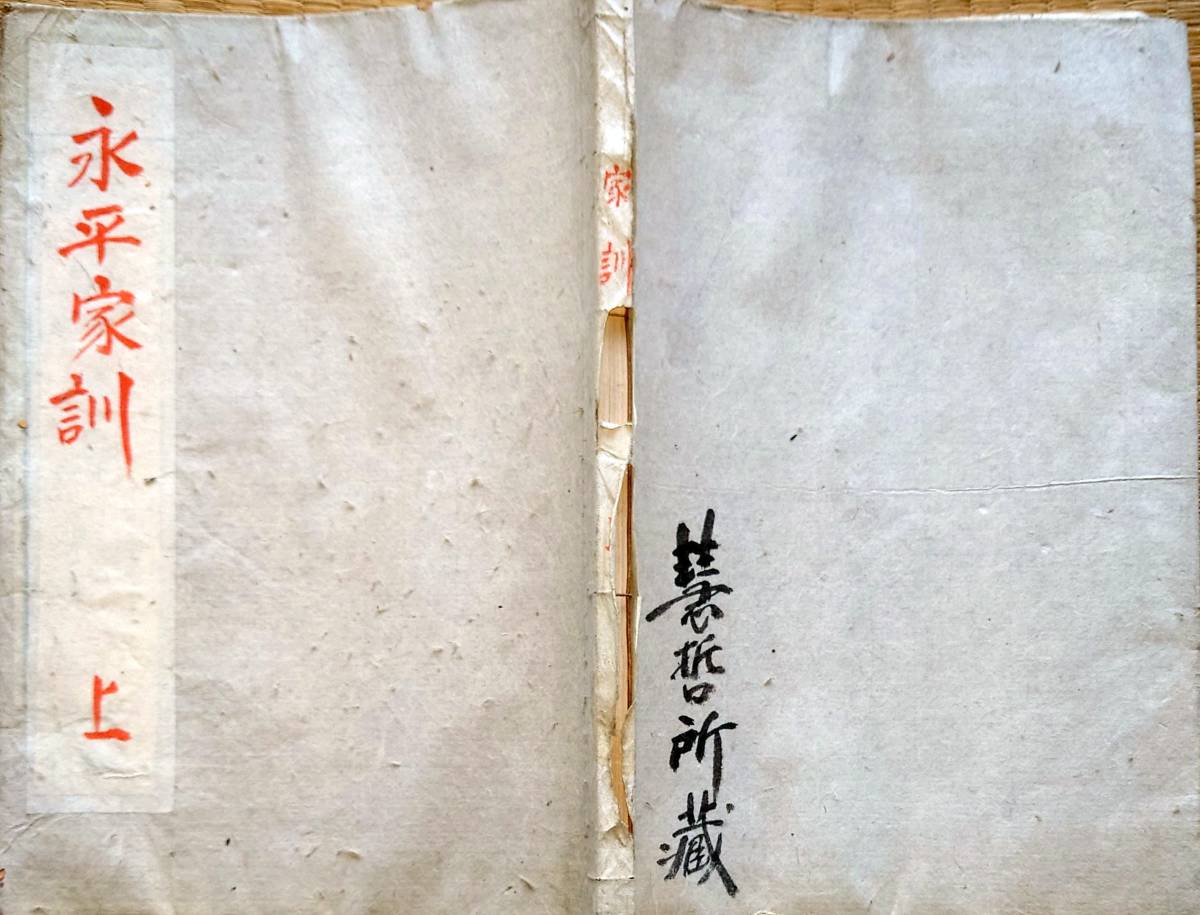 永平家訓 上
家訓
慧哲所藏